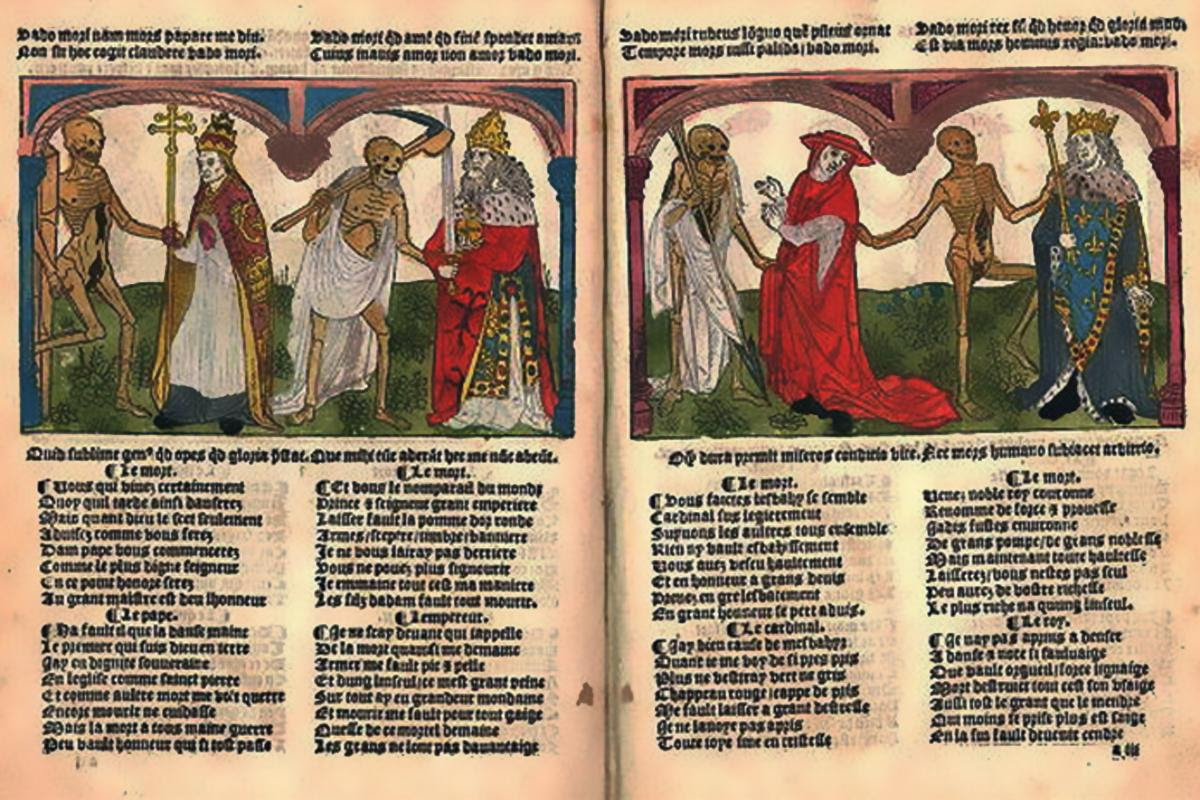 Vado mori nam mors papare me diu.
Non sit hoc cogit claudere vado mori.
Vado mori qd amē qd finē spondet amari
Cuius inanis amor non amor vado mori.
Quid sublime genꝰ qd opes qd gloria p̄stat. Que mihi tūc aderāt hec me nūc abeūt.
¶ Le mort.
¶ Vous qui vivez certainement
Quoy qui tarde ainsi danserez
Mais quant dieu le scet seulement
Advisez comme vous ferez
Dam pape vous commencerez
Comme le plus digne seigneur
En ce point honore serez
Au grant maistre est deu lhonneur
¶ Le pape.
¶ Ha fault il que la danse maine
Le premier qui suis dieu en terre
Jay eu dignite souveraine
En leglise comme sainct pierre
Et comme aultre mort me vōit querre
Encore mourir ne cuidasse
Mais la mort a tous maine guerre
Peu vault honneur qui si tost passe
¶ Le mort.
¶ Et vous le nomparail du monde
Prince & seigneur grant emperiere
Laisser fault la pomme dor ronde
Armes/sceptre/timbre/banniere
Je ne vous lairay pas derriere
Vous ne pouez plus signourir
Jemmaine tout cest ma maniere
Les filz dadam fault tout mourir.
¶ Lempereur.
¶ Je ne scay devant qui iappelle
De la mort quansi me demaine
Armer me fault pic & pelle
Et dung linseul/ce mest grant peine
Sur tout ay eu grandeur mondaine
Et mourir me fault pour tout gaige
Quesse de ce mortel demaine
Les grans ne lont pas davantaige
Vado mori rubeus quē pileus ornat
Tempore mors nulli palida: vado mori.
Vado mori rex sū qd honor qd gloria mundi
Est via mors hominis regia: vado mori.
Oh dura premit miseros conditio vite. Nec mors humano subiacet arbitrio.
¶ Le mort.
¶ Vous faictes lesbahy se semble
Cardinal sus legierement
Suyuons les aultres tous ensemble
Rien ny vault esbahissement
Vous avez vescu haultement
Et en honneur a grans devis
Prenez en gre lesbatement
En grant honneur se pert advis.
¶ Le cardinal.
¶ Jay bien cause de mesbahyr
Quant ie me voy de si pres pris
Plus ne vestiray vert ne gris
Chappeau rouge/cappe de pris
Me fault laisser a grant destresse
Je ne lavoye pas apris
Toute ioye fine en tristesse
¶ Le mort.
Venez noble roy couronne
Renomme de force & prouesse
Jadis fustes environne
De grans pompe/de grans noblesse
Mais maintenant toute haultesse
Laisserez/vous nestes pas seul
Peu aurez de vostre richesse
Le plus riche na quung linseul.
¶ Le roy.
¶ Je nay pas apris a denser
A danse & note si sauvaige
Que vault orgueil/force lignaige
Mort destruict tout cest son usaige
Aussi tost le grant que le mendre
Qui moins se prise plus est saige
En la fin fault devenir cendre